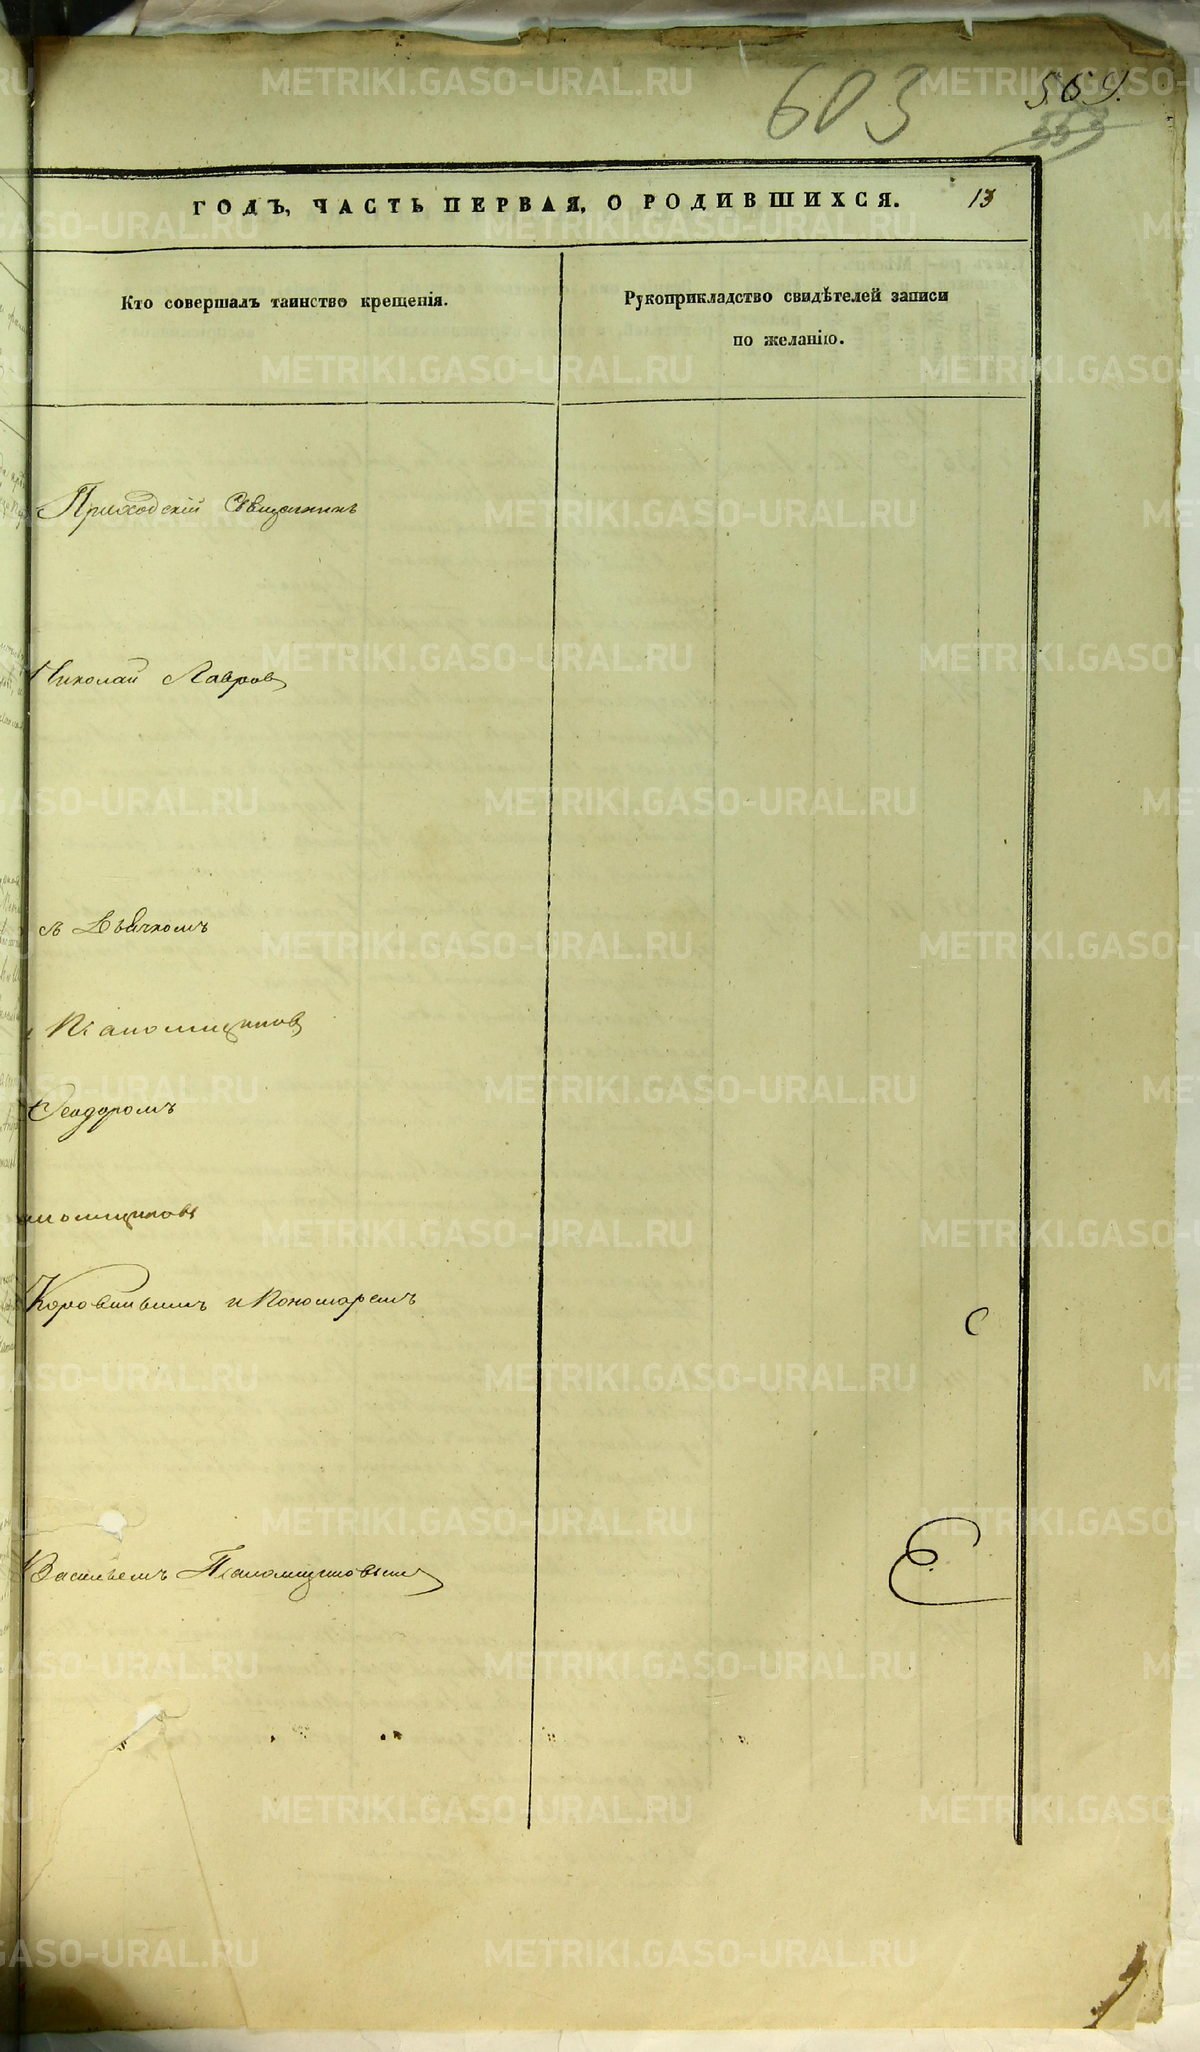 603
569.
553
ГОДЪ, ЧАСТЬ ПЕРВАЯ, О РОДИВШИХСЯ.
13
Кто совершалъ таинство крещенія.
Рукоприкладство свидѣтелей записи
по желанію.
Приходскій Священникъ
Николай Лавров
съ Дьячкомъ
Феодоромъ
Коровинымъ и Пономаремъ
Васильемъ
С
METRIKI.GASO-URAL.RU